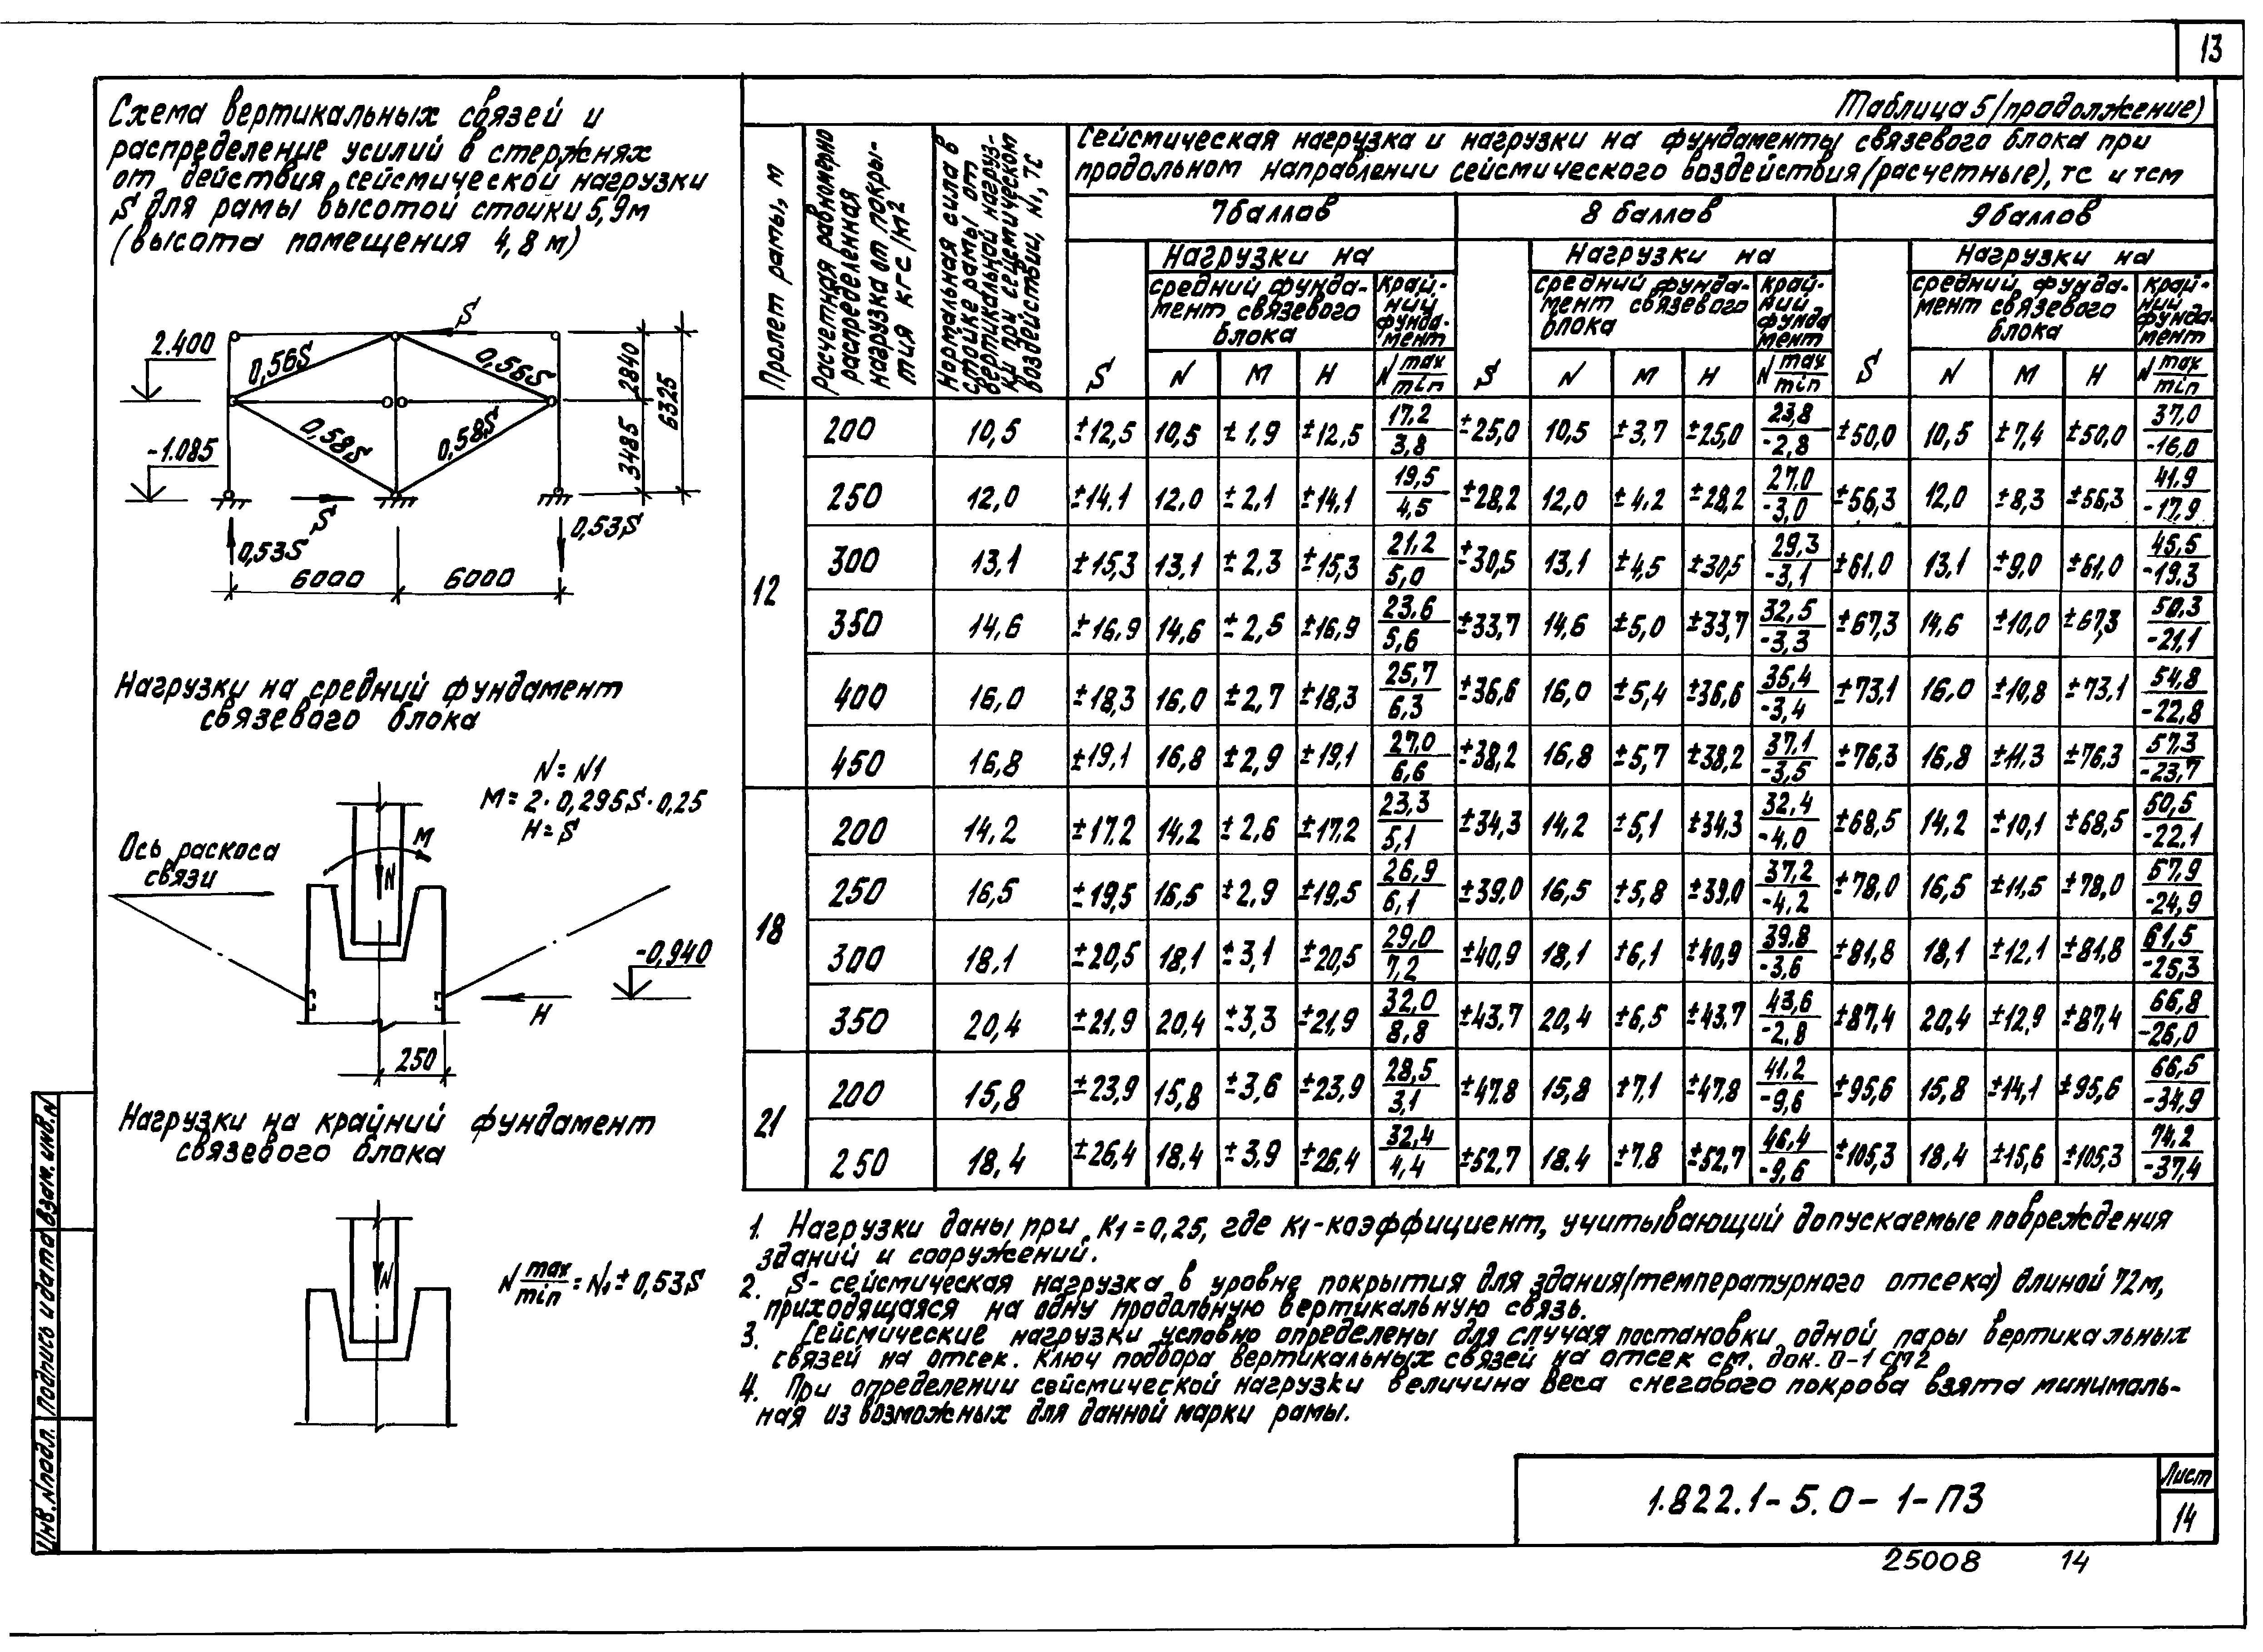 13
Схема вертикальных связей и
распределение усилий в стержнях
от действия сейсмической нагрузки
S для рамы высотой стойки 5,9м
(высота помещения 4,8 м)
S
2.400
0,56S
0,56S
2840
6325
-1.085
0,58S
0,58S
3485
S
0,53S
0,53S
6000
6000
Нагрузки на средний фундамент
связевого блока
N=N1
M=2·0,295S·0,25
H=S
Ось раскоса
связи
M
N
-0,940
H
250
Нагрузки на крайний фундамент
связевого блока
N
N max/min = N1 ± 0,53S
Таблица 5 (продолжение)
Пролет рамы, м
Расчетная равномерно
распределенная
нагрузка от покры-
тия кгс/м2
Нормальная сила в
стойке рамы от
вертикальной нагруз-
ки при сейсмическом
воздействии, N1, тс
Сейсмическая нагрузка и нагрузки на фундаменты связевого блока при
продольном направлении сейсмического воздействия (расчетные), тс и тсм
7 баллов 8 баллов 9 баллов
Нагрузки на Нагрузки на Нагрузки на
средний фунда-
мент связевого
блока
край-
ний
фунда-
мент
средний фунда-
мент связевого
блока
край-
ний
фунда
мент
средний фунда-
мент связевого
блока
край-
ний
фунда-
мент
S N M H N max/min S N M H N max/min S N M H N max/min
12
200 10,5 ±12,5 10,5 ±1,9 ±12,5 17,2/3,8 ±25,0 10,5 ±3,7 ±25,0 23,8/-2,8 ±50,0 10,5 ±7,4 ±50,0 37,0/-16,0
250 12,0 ±14,1 12,0 ±2,1 ±14,1 19,5/4,5 ±28,2 12,0 ±4,2 ±28,2 27,0/-3,0 ±56,3 12,0 ±8,3 ±56,3 41,9/-17,9
300 13,1 ±15,3 13,1 ±2,3 ±15,3 21,2/5,0 ±30,5 13,1 ±4,5 ±30,5 29,3/-3,1 ±61,0 13,1 ±9,0 ±61,0 45,5/-19,3
350 14,6 ±16,9 14,6 ±2,5 ±16,9 23,6/5,6 ±33,7 14,6 ±5,0 ±33,7 32,5/-3,3 ±67,3 14,6 ±10,0 ±67,3 50,3/-21,1
400 16,0 ±18,3 16,0 ±2,7 ±18,3 25,7/6,3 ±36,6 16,0 ±5,4 ±36,6 35,4/-3,4 ±73,1 16,0 ±10,8 ±73,1 54,8/-22,8
450 16,8 ±19,1 16,8 ±2,9 ±19,1 27,0/6,6 ±38,2 16,8 ±5,7 ±38,2 37,1/-3,5 ±76,3 16,8 ±11,3 ±76,3 57,3/-23,7
18
200 14,2 ±17,2 14,2 ±2,6 ±17,2 23,3/5,1 ±34,3 14,2 ±5,1 ±34,3 32,4/-4,0 ±68,5 14,2 ±10,1 ±68,5 50,5/-22,1
250 16,5 ±19,5 16,5 ±2,9 ±19,5 26,9/6,1 ±39,0 16,5 ±5,8 ±39,0 37,2/-4,2 ±78,0 16,5 ±11,5 ±78,0 57,9/-24,9
300 18,1 ±20,5 18,1 ±3,1 ±20,5 29,0/7,2 ±40,9 18,1 ±6,1 ±40,9 39,8/-3,6 ±81,8 18,1 ±12,1 ±81,8 61,5/-25,3
350 20,4 ±21,9 20,4 ±3,3 ±21,9 32,0/8,8 ±43,7 20,4 ±6,5 ±43,7 43,6/-2,8 ±87,4 20,4 ±12,9 ±87,4 66,8/-26,0
21
200 15,8 ±23,9 15,8 ±3,6 ±23,9 28,5/3,1 ±47,8 15,8 ±7,1 ±47,8 41,2/-9,6 ±95,6 15,8 ±14,1 ±95,6 66,5/-34,9
250 18,4 ±26,4 18,4 ±3,9 ±26,4 32,4/4,4 ±52,7 18,4 ±7,8 ±52,7 46,4/-9,6 ±105,3 18,4 ±15,6 ±105,3 74,2/-37,4
1. Нагрузки даны при K1=0,25, где K1-коэффициент, учитывающий допускаемые повреждения
зданий и сооружений.
2. S- сейсмическая нагрузка в уровне покрытия для здания (температурного отсека) длиной 72м,
приходящаяся на одну продольную вертикальную связь.
3. Сейсмические нагрузки условно определены для случая постановки одной пары вертикальных
связей на отсек. Ключ подбора вертикальных связей на отсек см. док. 0-1 см2
4. При определении сейсмической нагрузки величина веса снегового покрова взята минималь-
ная из возможных для данной марки рамы.
Инв. N подл. Подпись и дата Взам. инв. N
1.822.1-5.0-1-ПЗ
Лист
14
25008 14